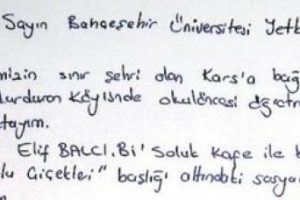 Sayın Bahçeşehir Üniversitesi Yetk
mizin sınır şehri olan Kars'a bağ
durduran Köyünde okulöncesi öğretm
tayım.
Elif BALCI. Bi' Soluk Kafe ile k
lu Çiçekleri" başlığı altındaki sosyal